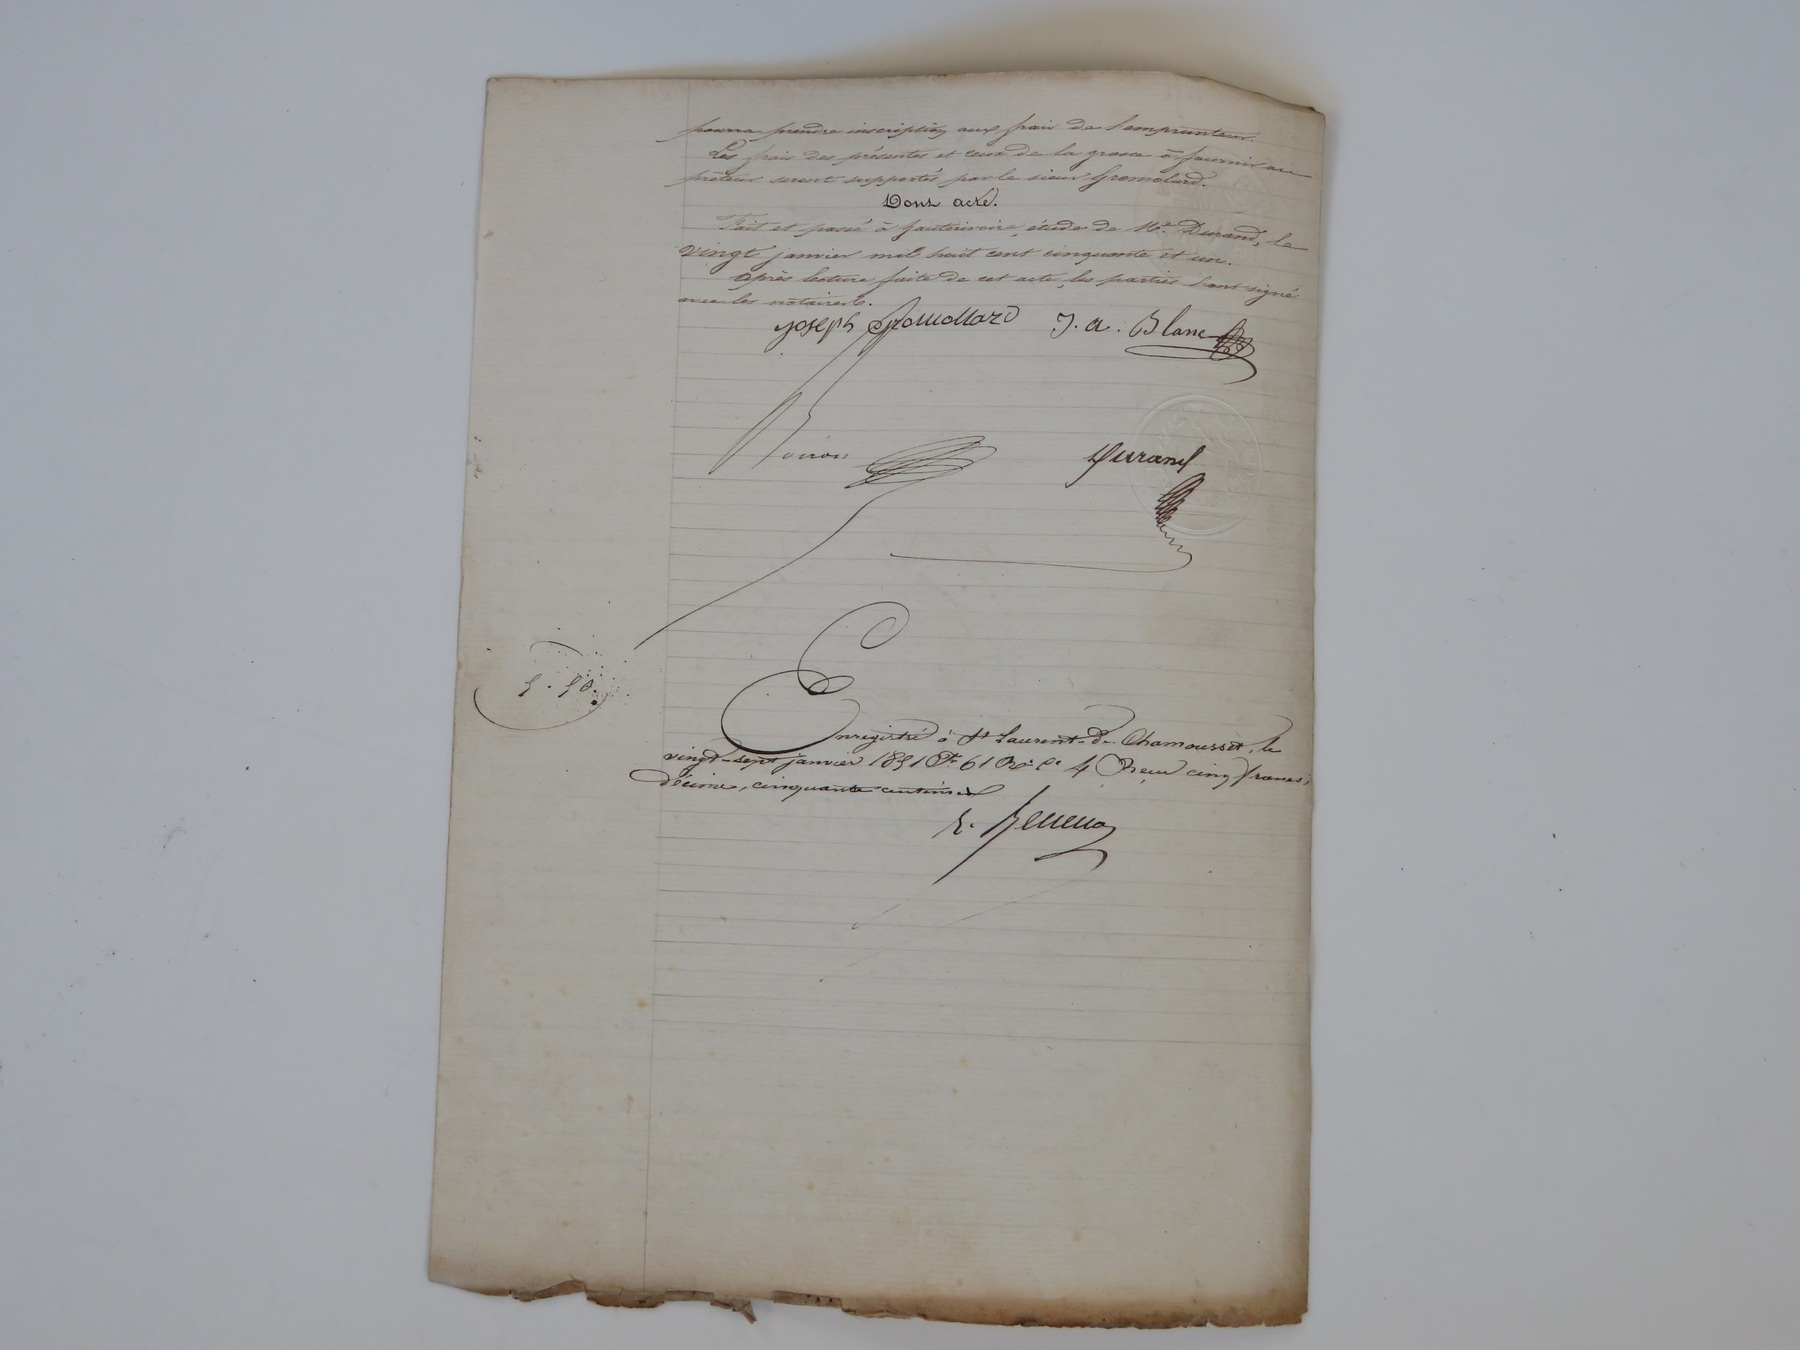 pourra prendre inscription aux frais de l'emprunteur.
Les frais des présentes et ceux de la grosse à fournir au
prêteur seront supportés par le sieur Gromolard.
Dont acte.
Fait et passé à hauterivoire, étude de Me. Durand, le
vingt janvier mil huit cent cinquante et un.
Après lecture faite de cet acte, les parties l'ont signé
avec les notaires.
Joseph Gromollard J. a. Blanc
Durand
5 . 50.
Enregistré à St Laurent-de-Chamousset, le
vingt-sept janvier 1851 Fo 61 Ro Ce 4 Reçu cinq francs,
décime, cinquante centimes